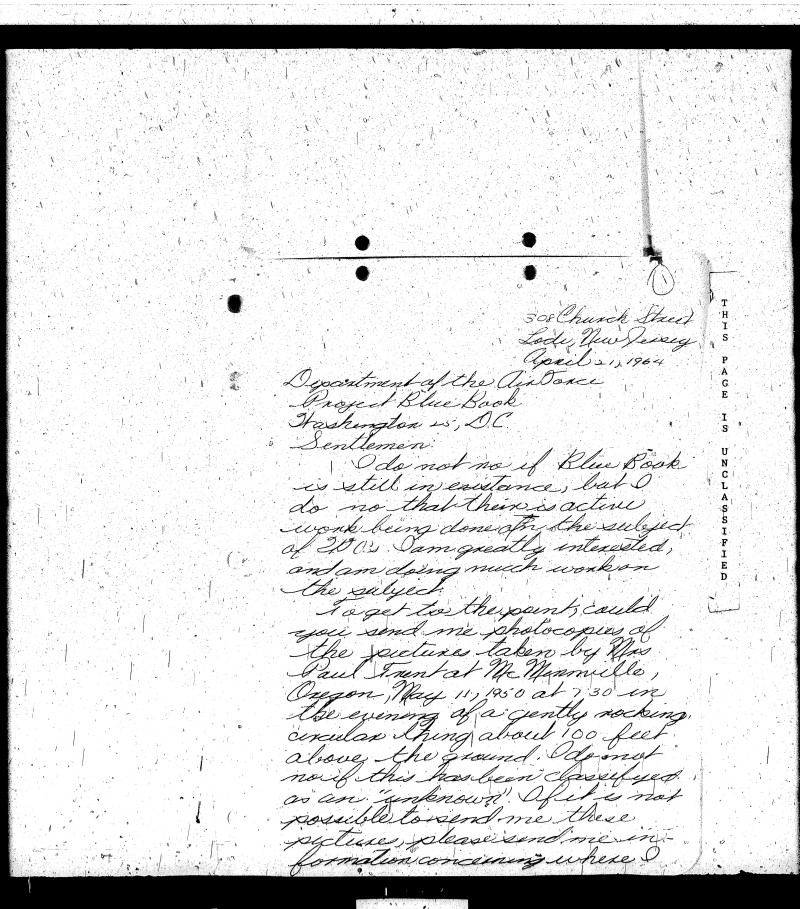 1
308 Church Street
Lodi, New Jersey
April 21, 1964
Department of the Air Force
Project Blue Book
Washington 25, D.C.
Gentlemen:
I do not no if Blue Book
is still in existance, but I
do no that their is active
work being done on the subject
of I am greatly interested,
and am doing much work on
the subject.
To get to the point, could
you send me photocopies of
the pictures taken by Mrs
Paul Trent at Mc Minnville,
Oregon, May 11, 1950 at 7:30 in
the evening of a gently rocking
circular thing about 100 feet
above the ground. I do not
no if this has been classifyed
as an "unknown". If it is not
possible to send me these
pictures, please send me in-
formation concerning where I
THIS PAGE IS UNCLASSIFIED